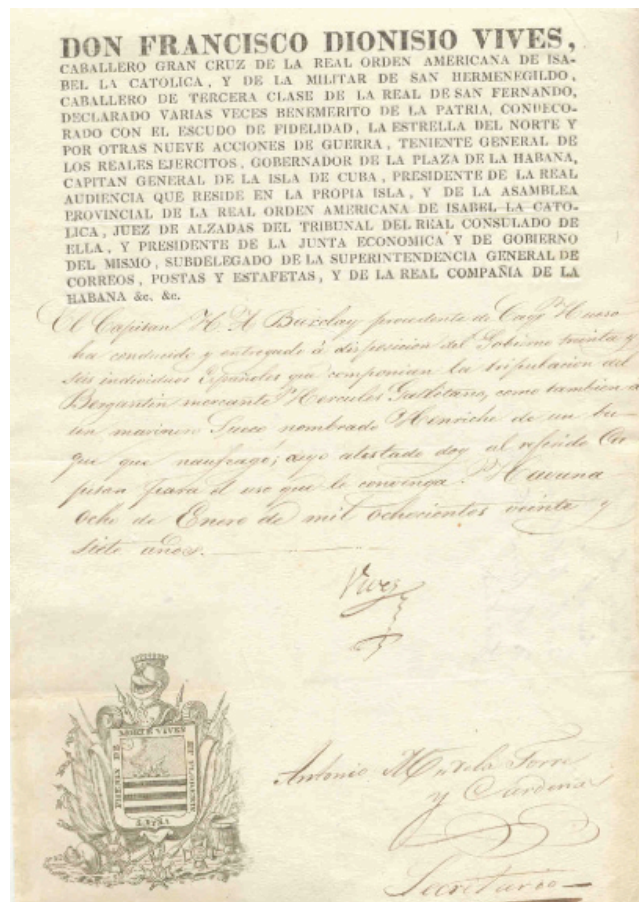 DON FRANCISCO DIONISIO VIVES,
CABALLERO GRAN CRUZ DE LA REAL ORDEN AMERICANA DE ISA-
BEL LA CATOLICA, Y DE LA MILITAR DE SAN HERMENEGILDO,
CABALLERO DE TERCERA CLASE DE LA REAL DE SAN FERNANDO,
DECLARADO VARIAS VECES BENEMERITO DE LA PATRIA, CONDECO-
RADO CON EL ESCUDO DE FIDELIDAD, LA ESTRELLA DEL NORTE Y
POR OTRAS NUEVE ACCIONES DE GUERRA, TENIENTE GENERAL DE
LOS REALES EJERCITOS, GOBERNADOR DE LA PLAZA DE LA HABANA,
CAPITAN GENERAL DE LA ISLA DE CUBA, PRESIDENTE DE LA REAL
AUDIENCIA QUE RESIDE EN LA PROPIA ISLA, Y DE LA ASAMBLEA
PROVINCIAL DE LA REAL ORDEN AMERICANA DE ISABEL LA CATO-
LICA, JUEZ DE ALZADAS DEL TRIBUNAL DEL REAL CONSULADO DE
ELLA, Y PRESIDENTE DE LA JUNTA ECONOMICA Y DE GOBIERNO
DEL MISMO, SUBDELEGADO DE LA SUPERINTENDENCIA GENERAL DE
CORREOS, POSTAS Y ESTAFETAS, Y DE LA REAL COMPAÑIA DE LA
HABANA &c. &c.
El Capitan H A Barclay procedente de Cayo Hueso
ha conducido y entregado à disposicion del Gobierno treinta y
seis individuos Españoles que componian la tripulacion del
Bergantin mercante Hercules Gaditano, como tambien a
un marinero Sueco nombrado Henriche de un bu-
que que naufragó; cuyo atestado doy al referido Ca
pitan para el uso que le convenga. Havana
ocho de Enero de mil ochocientos veinte y
siete años.
Vives
MORTE VIVES
ET
Antonio M de la Torre
y Cardenas
Secretario